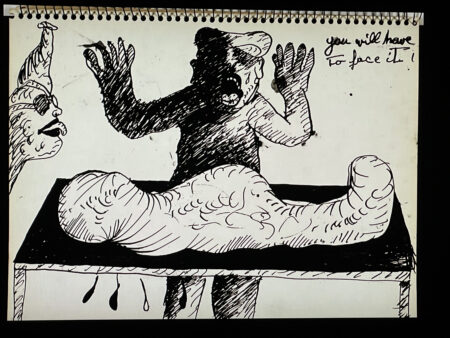 you will have
To face it !